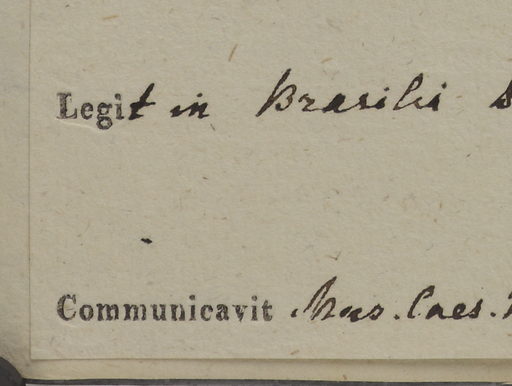 Legit in Brasilii
Communicavit Mus. Caes.